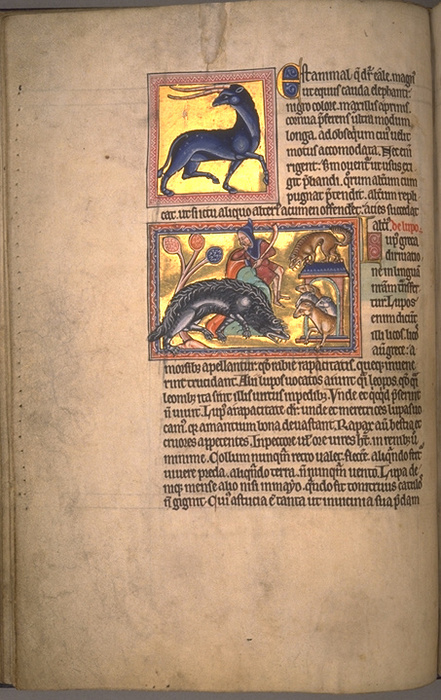 Est animal qď dr̄ eale. magnū
ut equus cauda elephanti.
nigro colore. maxillis aprinis.
cornua p̄ferens ultra modum
longa. ad obsequium cui uelit
motus accomodata. Nec enī
rigent. s; mouent̄ ut usus exi
git p̄liandi. quorum alt̄um cum
pugnat p̄tendit. alt̄um repli
cat. ut si ictu aliquo alterī acumen offenderit. acies succedat
alt̄ī. de lupo.
Lupꝰ greca
diriuatio
ne in linguā
nr̄am trāsfer
tur. Lupos
enim dicūt
illi licos. licos
aū grece. a
morsibus apellantur. qď rabie rapacitatis. queque inuene
rint trucidant. Alii lupos uocatos aiunt q̄i leopos. qď q̄i
leonib; ita sint illis uirtus in pedib;. Vnde et qcqd p̄sserint
ñ uiuit. Lupꝰ a rapacitate dr̄. unde et meretrices lupas uo
camꝰ. qr amantium bona deuastant. Rapax aū bestia et
cruores appetens. In pectore ul ore uires ht̄. in renib; ū
minime. Collum nunqm̄ retro ualet flectē. aliqn̄do fert̄
uiuere preda. aliqn̄do terra. ñnunqm̄ uento. Lupa de
niq; mense alio nisi in mayo. qn̄do fit tonitruus catulos
ñ gignit. Cuiꝰ astucia ē tanta ut in uicinia sua p̄dam